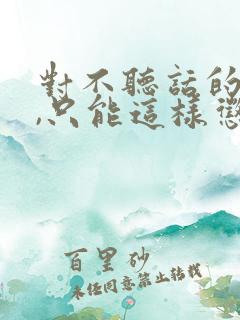 對不聽話的
只能這樣
百里砂
未經同意禁止轉載